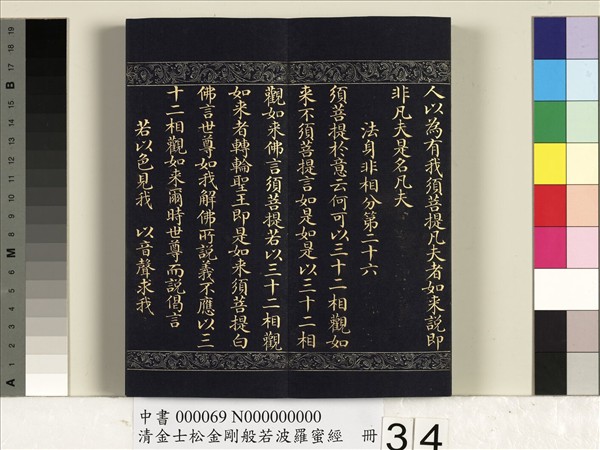 人以為有我須菩提凡夫者如來說即
非凡夫是名凡夫
法身非相分第二十六
須菩提於意云何可以三十二相觀如
來不須菩提言如是如是以三十二相
觀如來佛言須菩提若以三十二相觀
如來者轉輪聖王即是如來須菩提白
佛言世尊如我解佛所說義不應以三
十二相觀如來爾時世尊而說偈言
若以色見我 以音聲求我
中書 000069 N000000000
清金士松金剛般若波羅蜜經 冊
34
A 1 2 3 4 5 6 M 8 9 10 11 12 13 14 15 B 17 18 19